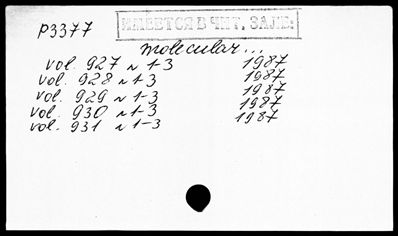 P3377
ИМЕЕТСЯ В ЧИТ. ЗАЛЕ.
molecular...
vol. 927 N 1-3 1987
vol. 928 N 1-3 1987
vol. 929 N 1-3 1987
vol. 930 N 1-3 1987
vol. 931 N 1-3 1987